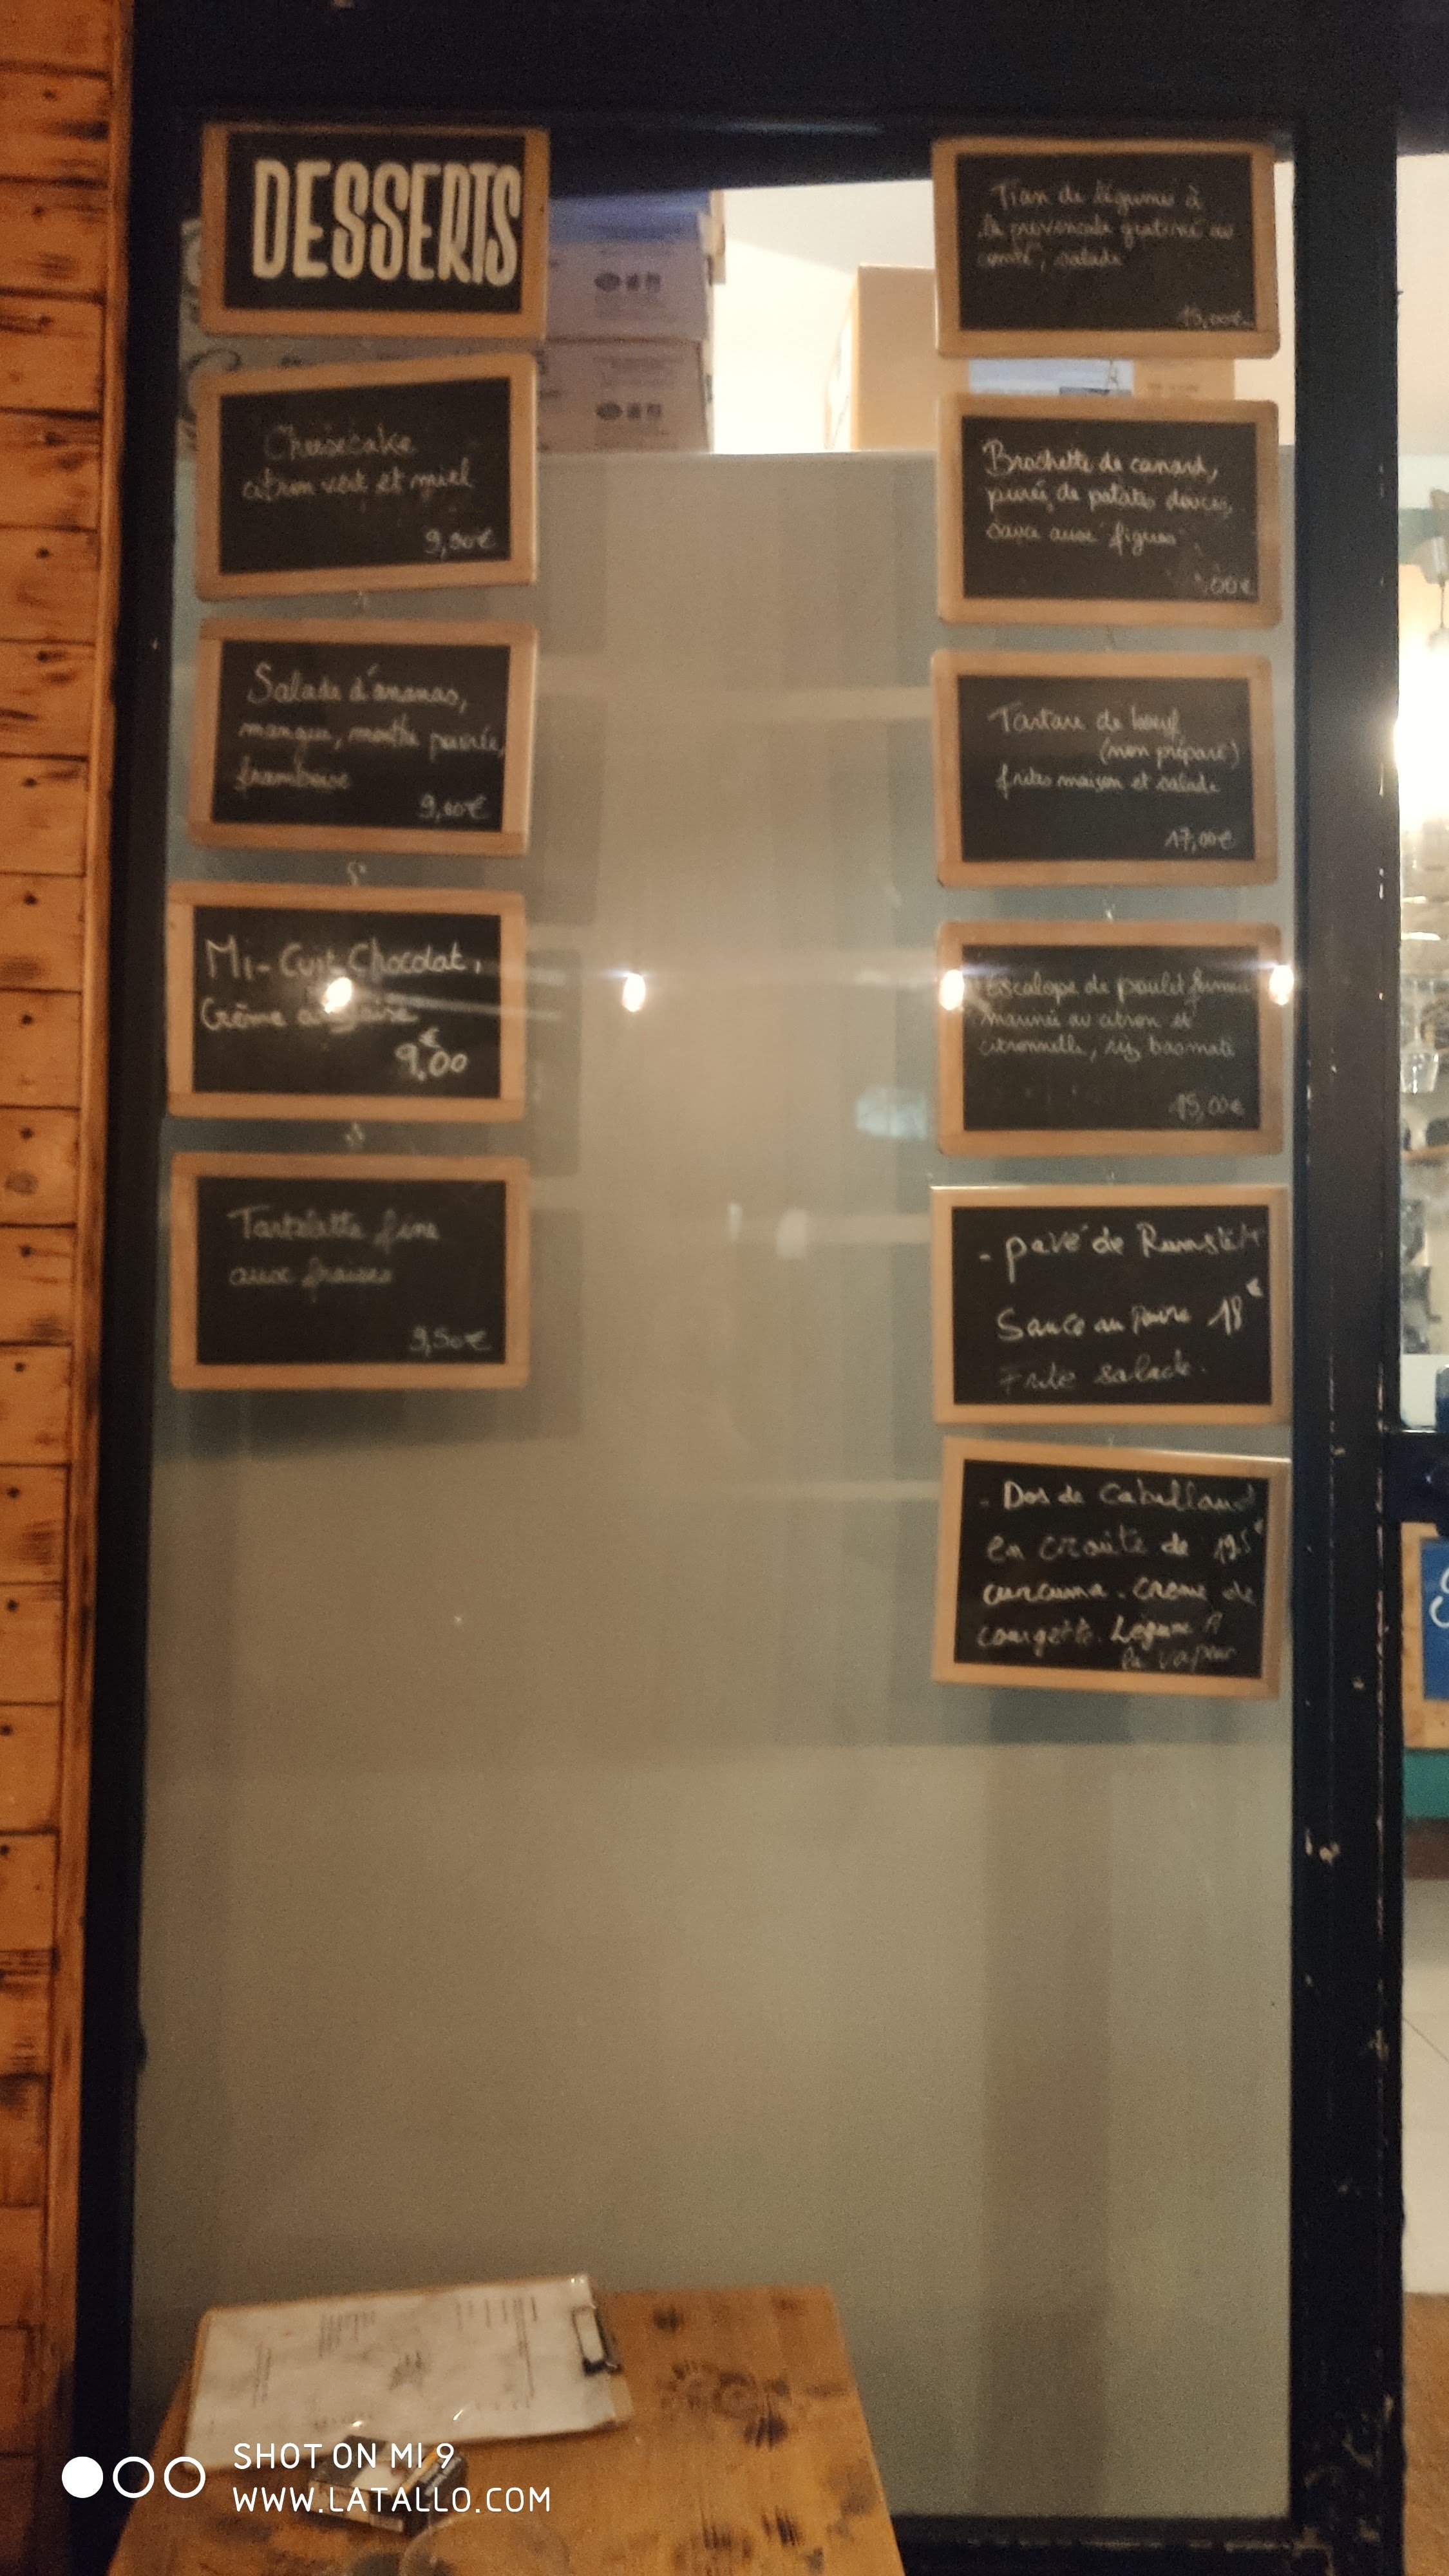 DESSERTS
Cheesecake
citron vert et miel
9,00€
Salade d'ananas,
mangue, menthe poivrée,
framboise
9,00€
Mi-Cuit Chocolat,
Crème anglaise
€
9,00
Tartelette fine
aux fraises
9,50€
Tian de légumes à
la provençale gratiné au
comté, salade
15,00€
Brochette de canard,
purée de patates douces,
sauce aux figues
,00€
Tartare de bœuf
(non préparé)
frites maison et salade
17,00€
Escalope de poulet fermier
marinée au citron et
citronnelle, riz basmati
15,00€
- pavé de Rumsteck
Sauce au poivre 18€
Frite salade.
- Dos de Cabillaud
en croûte de 19.5€
curcuma - crème de
courgette. Légume A
la vapeur
SHOT ON MI 9
WWW.LATALLO.COM